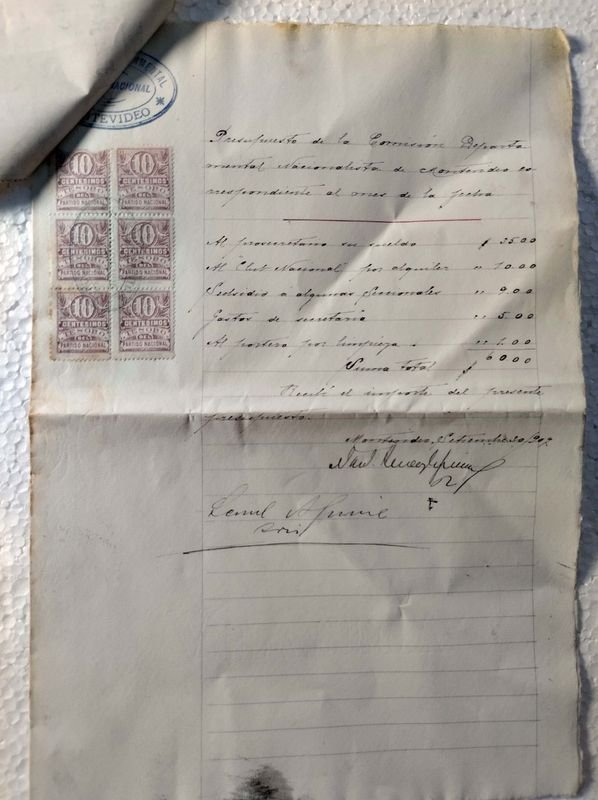 MENTAL
NACIONAL
MONTEVIDEO
10 CENTESIMOS TESORO DEL PARTIDO NACIONAL
10 CENTESIMOS TESORO DEL PARTIDO NACIONAL
10 CENTESIMOS TESORO DEL PARTIDO NACIONAL
10 CENTESIMOS TESORO DEL PARTIDO NACIONAL
10 CENTESIMOS TESORO DEL PARTIDO NACIONAL
10 CENTESIMOS TESORO DEL PARTIDO NACIONAL
Presupuesto de la Comisión Departa
mental Nacionalista de Montevideo co
rrespondiente al mes de la fecha
Al prosecretario su sueldo $ 35.00
Al Club Nacional por alquiler " 10.00
Subsidio á algunas Seccionales " 9.00
Gastos de secretaria " 5.00
Al portero por limpieza " 1.00
Suma total $ 60.00
Recibí el importe del presente
presupuesto.
Montevideo, Setiembre 30